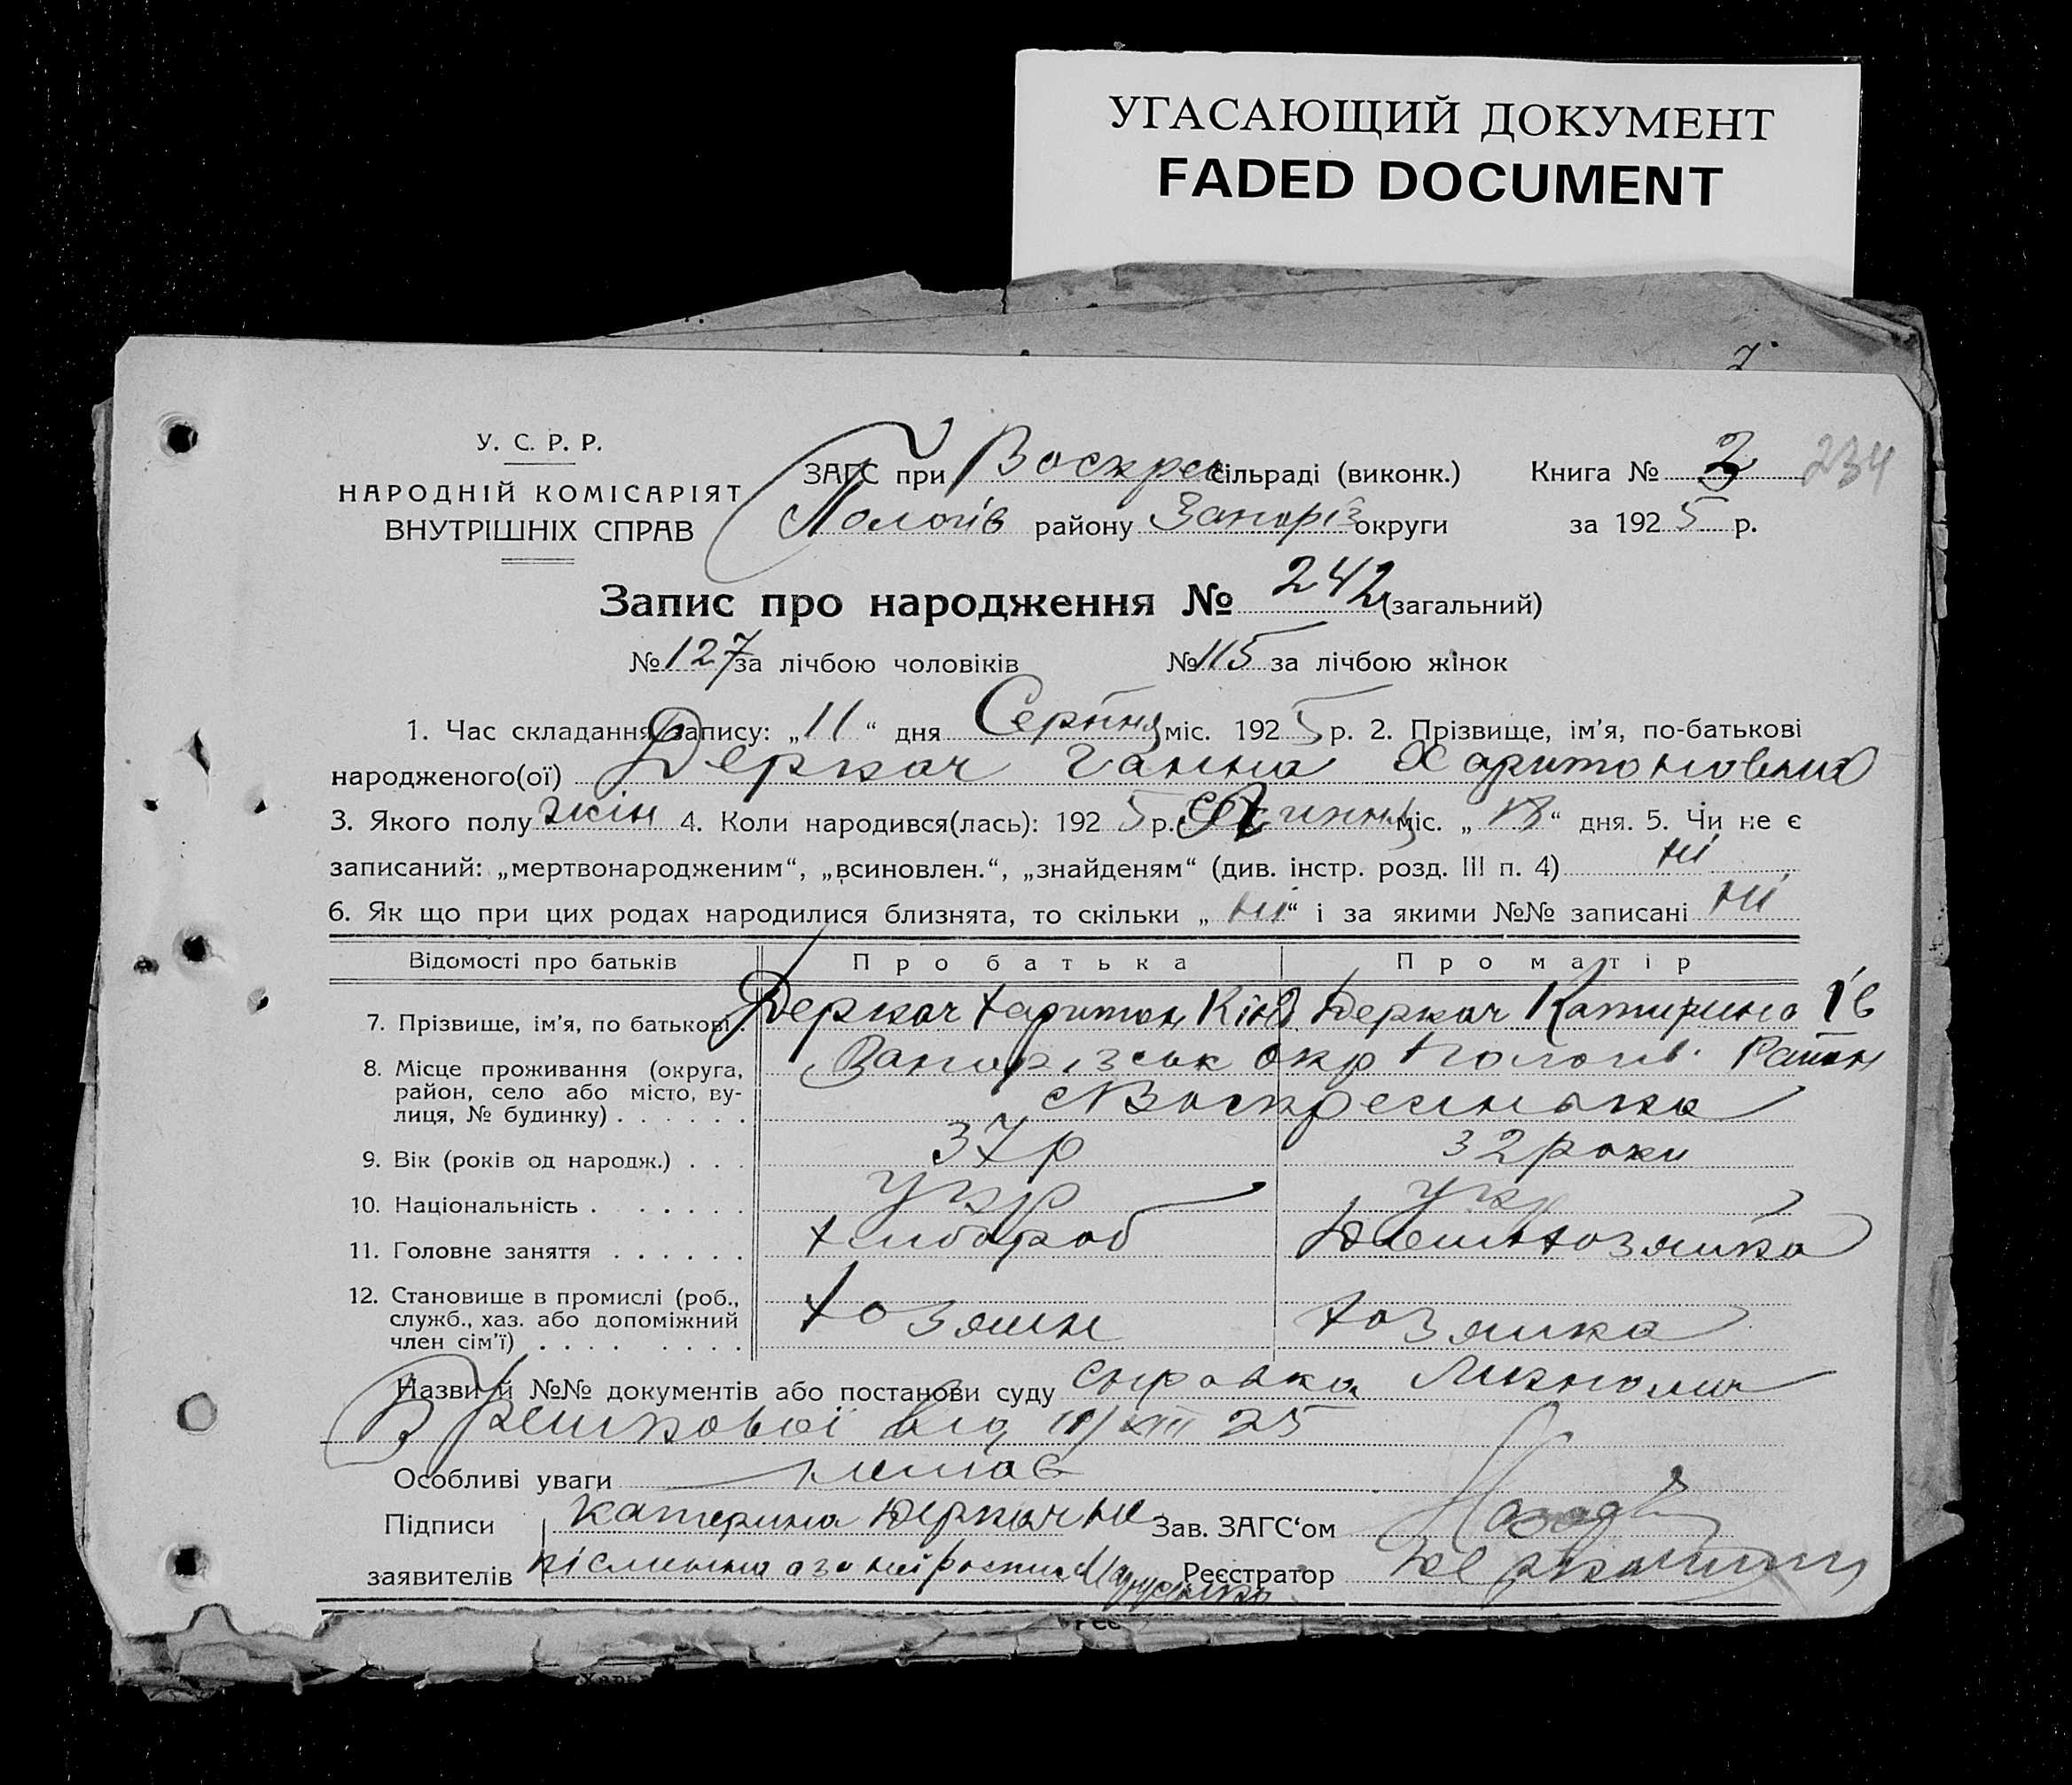 УГАСАЮЩИЙ ДОКУМЕНТ
FADED DOCUMENT
У. С. Р. Р.
НАРОДНІЙ КОМІСАРІЯТ
ВНУТРІШНІХ СПРАВ
ЗАГС при Воскрес сільраді (виконк.)
Пологів району Запоріз округи
Книга № 2 234
за 1925 р.
Запис про народження № 242 (загальний)
№ 127 за лічбою чоловіків № 115 за лічбою жінок
1. Час складання запису: „11“ дня Серпня міс. 1925 р. 2. Прізвище, ім’я, по-батькові
народженого(ої) Деркач Ганна Харитоновна
3. Якого полу жін 4. Коли народився(лась): 1925 р. міс. „ “ дня. 5. Чи не є
записаний: „мертвонародженим“, „всиновлен.“, „знайденям“ (див. інстр. розд. III п. 4) ні
6. Як що при цих родах народилися близнята, то скільки „ні“ і за якими №№ записані ні
Відомості про батьків Про батька Про матір
7. Прізвище, ім’я, по батькові. Деркач Харитон Деркач Катирина Ів
8. Місце проживання (округа, Запорізськ окр Пологів. Район
район, село або місто, ву-
лиця, № будинку) . . . . . . с Воскресинька
9. Вік (років од народж.) . . . 37 р 32 роки
10. Національність . . . . . . . укр укр
11. Головне заняття . . . . . . хлібороб Домохозяйка
12. Становище в промислі (роб.,
служб., хаз. або допоміжний хозяин хозяика
член сім’ї) . . . . . . . .
Назви й №№ документів або постанови суду справка
від 11/VIII 25
Особливі уваги немає
Підписи Катерина Деркач не Зав. ЗАГС‘ом
заявителів письменна а за неї Реєстратор